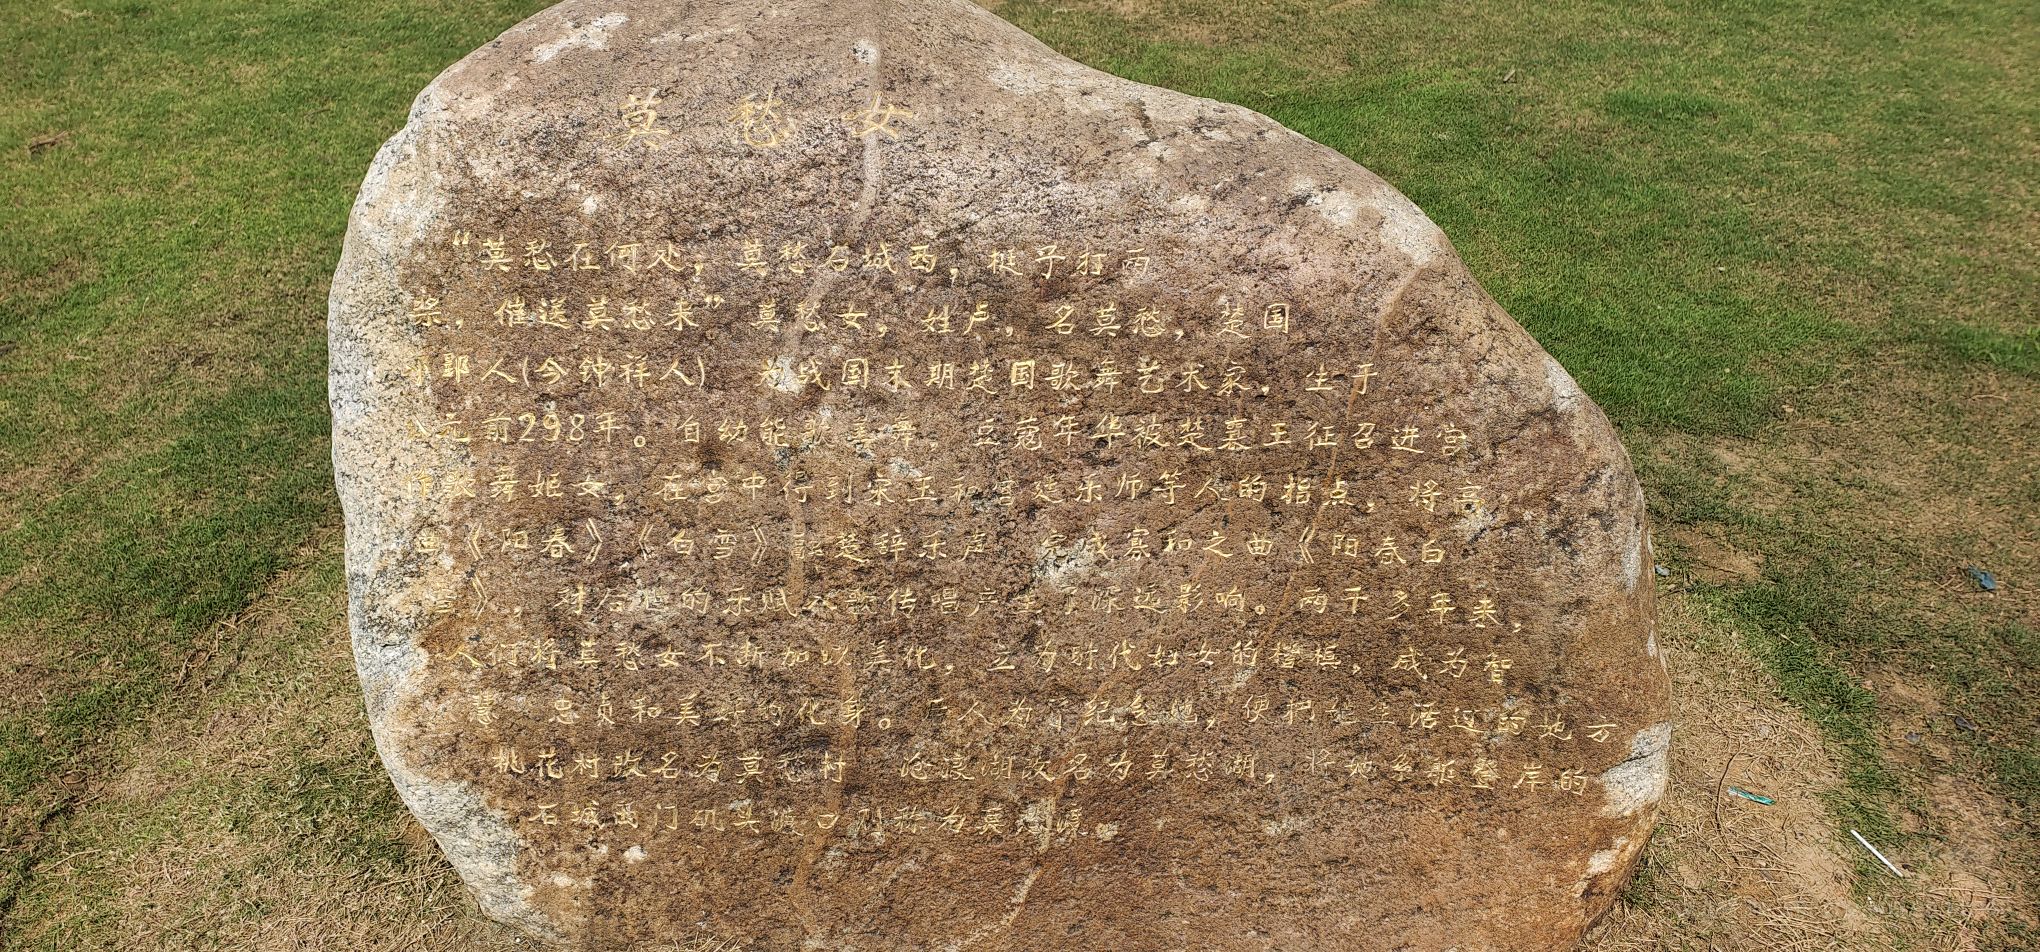 莫愁女
“莫愁在何处，莫愁石城西，挺子打两
桨，催送莫愁来”。莫愁女，姓卢，名莫愁，楚国
郢人(今钟祥人) 为战国末期楚国歌舞艺术家，生于
公元前298年。自幼能歌善舞，豆蔻年华被楚襄王征召进宫
作歌舞姬女，在宫中得到宋玉和宫廷乐师等人的指点，将高
曲《阳春》《白雪》 楚辞乐声 完成寡和之曲《阳春白
雪》，对后世的乐赋 歌传唱产生了深远影响。两千多年来，
人们将莫愁女不断加以美化，立为时代妇女的楷模，成为智
慧 忠贞和美好的化身。后人为了纪念她，便把她生活过的地方
桃花村改名为莫愁村 沧浪湖改名为莫愁湖，将她 登岸的
石城西门矶头渡口别称为莫愁